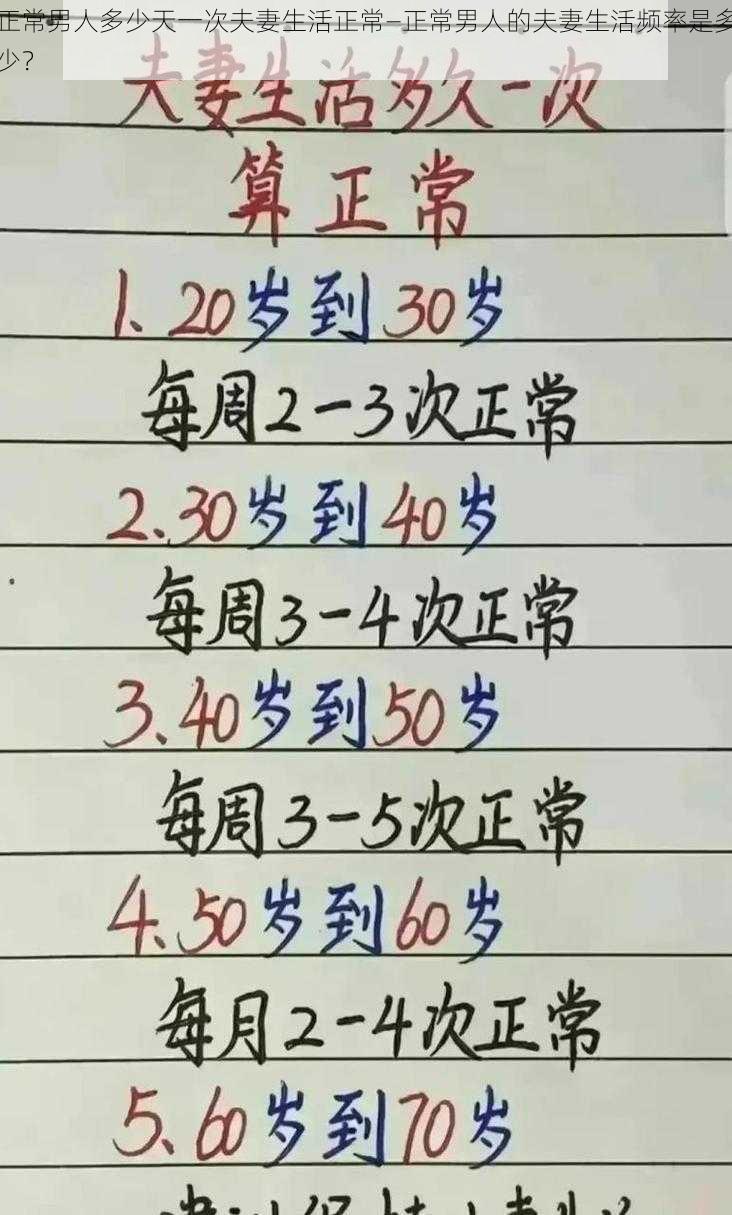 正常男人多少天一次夫妻生活正常—正常男人的夫妻生活频率是多
少？
夫妻生活多久一次
算正常
1、20岁到30岁
每周2-3次正常
2、30岁到40岁
每周3-4次正常
3、40岁到50岁
每周3-5次正常
4、50岁到60岁
每月2-4次正常
5、60岁到70岁